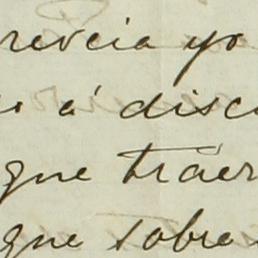 reveia yo
á disc
que traer
que sobre